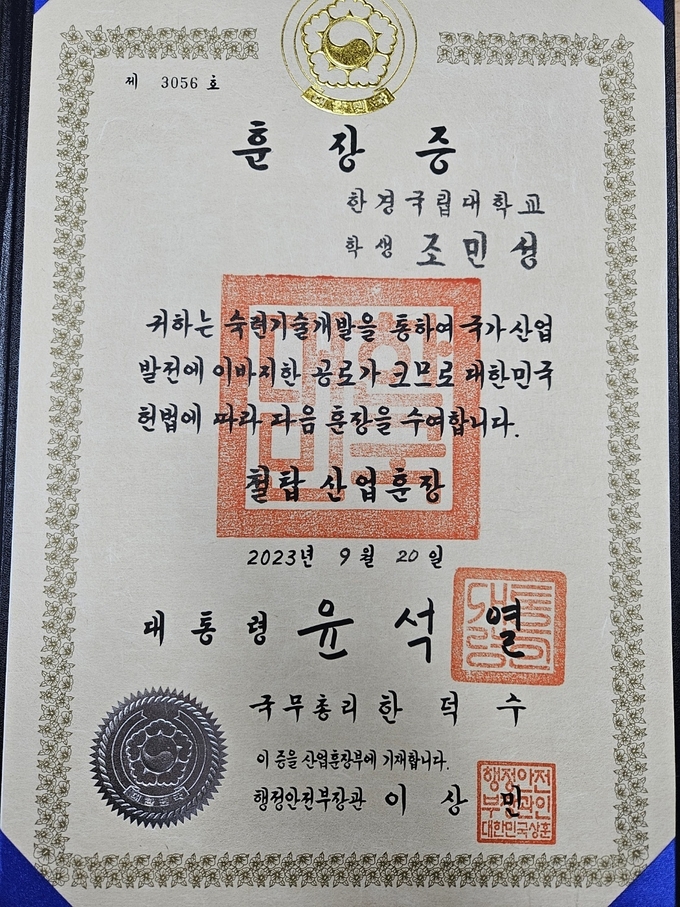 제 3056 호
훈 장 증
한경국립대학교
학생 조민성
귀하는 숙련기술개발을 통하여 국가산업
발전에 이바지한 공로가 크므로 대한민국
헌법에 따라 다음 훈장을 수여합니다.
철탑 산업훈장
2023년 9월 20일
대통령 윤석열
국무총리 한덕수
이 증을 산업훈장부에 기재합니다.
행정안전부장관 이상민
행정안전
부장관인
대한민국상훈